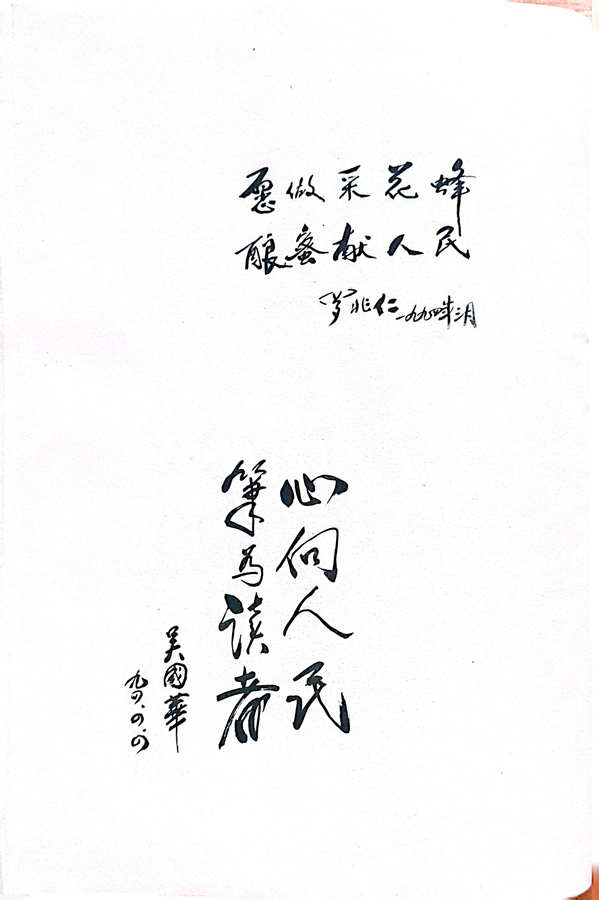 愿做采花蜂
酿蜜献人民
罗非仁 一九九四年三月
心向人民
笔为读者
吴國華
九四.四.四